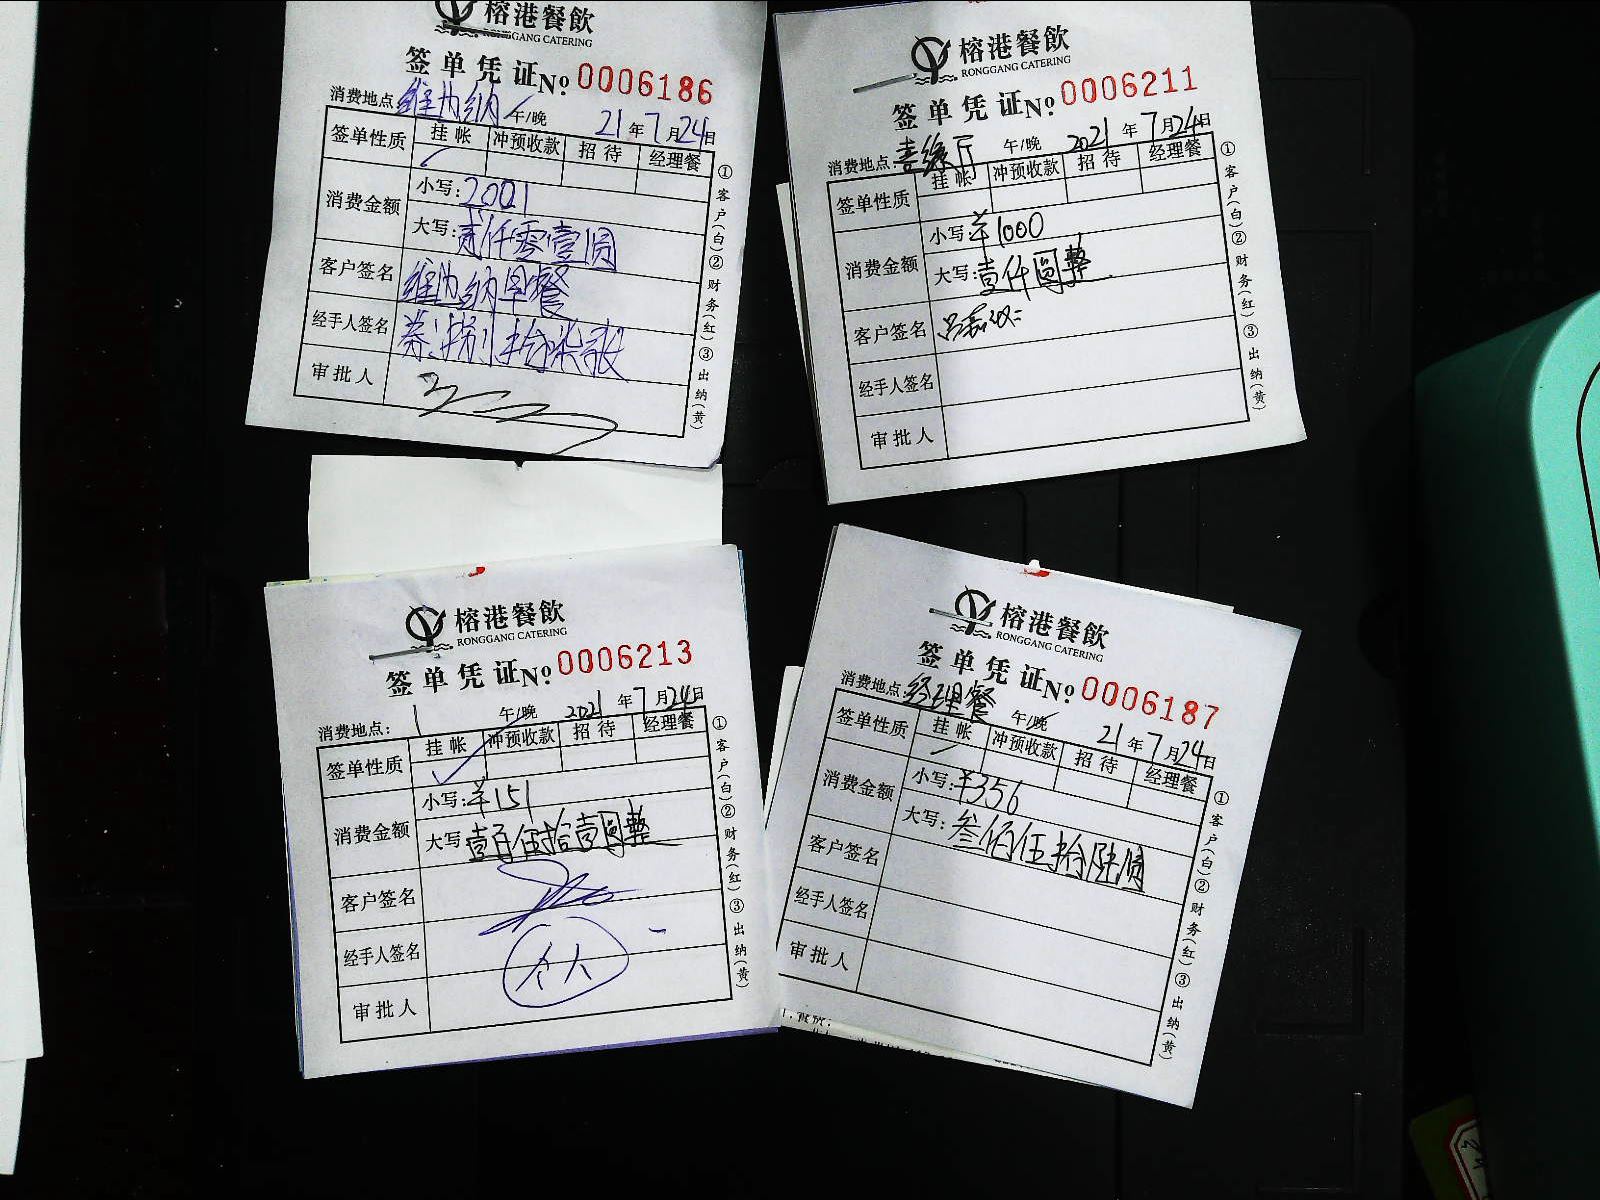 榕港餐飲
RONGGANG CATERING
签单凭证 No. 0006186
消费地点 维也纳 午/晚 21年7月24日
签单性质 挂帐 冲预收款 招待 经理餐
消费金额 小写:2001
大写:贰仟零壹圆
客户签名 维也纳早餐
经手人签名
审批人
①客户(白)②财务(红)③出纳(黄)
榕港餐飲
RONGGANG CATERING
签单凭证 No. 0006211
消费地点: 午/晚 2021年7月24日
签单性质 挂帐 冲预收款 招待 经理餐
消费金额 小写:¥1000
大写:壹仟圆整
客户签名
经手人签名
审批人
①客户(白)②财务(红)③出纳(黄)
榕港餐飲
RONGGANG CATERING
签单凭证 No. 0006213
消费地点: 1 午/晚 2021年7月24日
签单性质 挂帐 冲预收款 招待 经理餐
消费金额 小写:¥151
大写 壹百伍拾壹圆整
客户签名
经手人签名 个人
审批人
①客户(白)②财务(红)③出纳(黄)
榕港餐飲
RONGGANG CATERING
签单凭证 No. 0006187
消费地点 经理餐 午/晚 21年7月24日
签单性质 挂帐 冲预收款 招待 经理餐
消费金额 小写:¥356
大写:叁佰伍拾陆圆
客户签名
经手人签名
审批人
①客户(白)②财务(红)③出纳(黄)